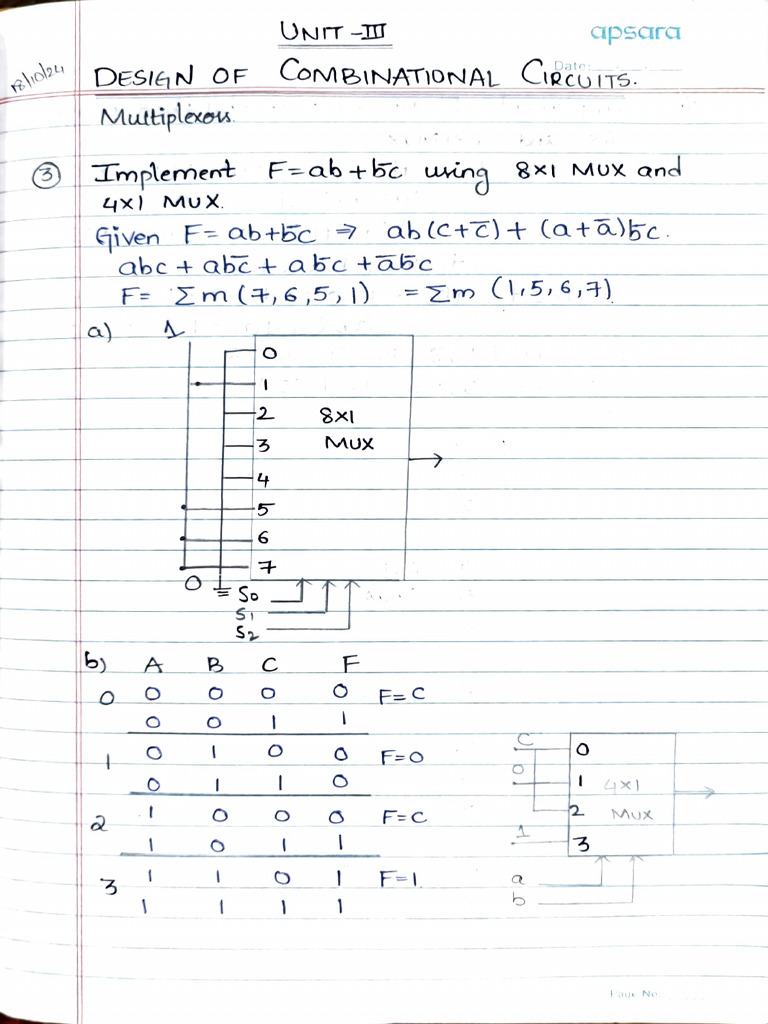 UNIT-III
apsara
Date:
18/10/24
DESIGN OF COMBINATIONAL CIRCUITS.
Multiplexors.
③ Implement F=ab+b̅c using 8x1 MUX and
4x1 MUX.
Given F=ab+b̅c ⇒ ab(c+c̅)+(a+a̅)b̅c.
abc+abc̅+ab̅c+a̅b̅c
F= Σm(7,6,5,1) =Σm (1,5,6,7)
a) 1
0
1
2 8x1
3 MUX
4
5
6
7
0
S0
S1
S2
b) A B C F
0 0 0 0 0 F=C
0 0 1 1
1 0 1 0 0 F=0
0 1 1 0
2 1 0 0 0 F=C
1 0 1 1
3 1 1 0 1 F=1
1 1 1 1
C 0
0 1 4x1
2 MUX
1 3
a
b
Page No.